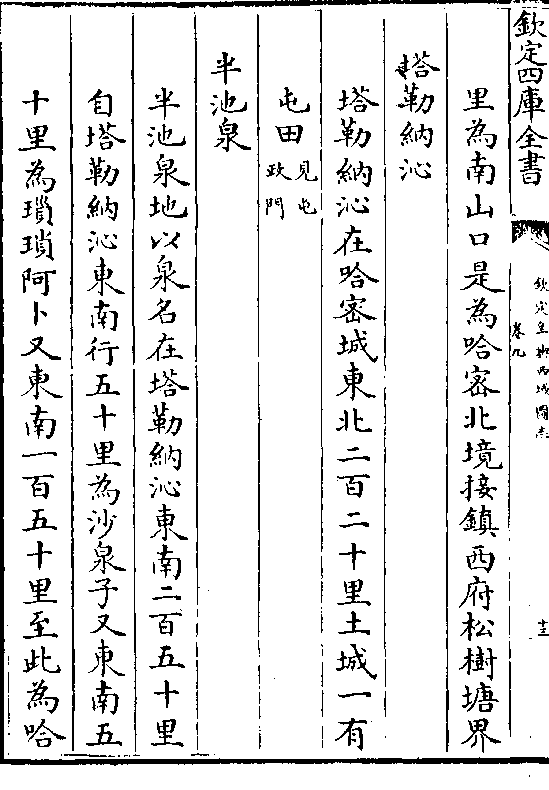 欽定四庫全書
欽定皇輿西域圖志
卷九
十三
里為南山口是為哈密北境接鎮西府松樹塘界
塔勒納沁
塔勒納沁在哈密城東北二百二十里土城一有
屯田見屯政門
半池泉
半池泉地以泉名在塔勒納沁東南二百五十里
自塔勒納沁東南行五十里為沙泉子又東南五
十里為瑣瑣阿卜又東南一百五十里至此為哈